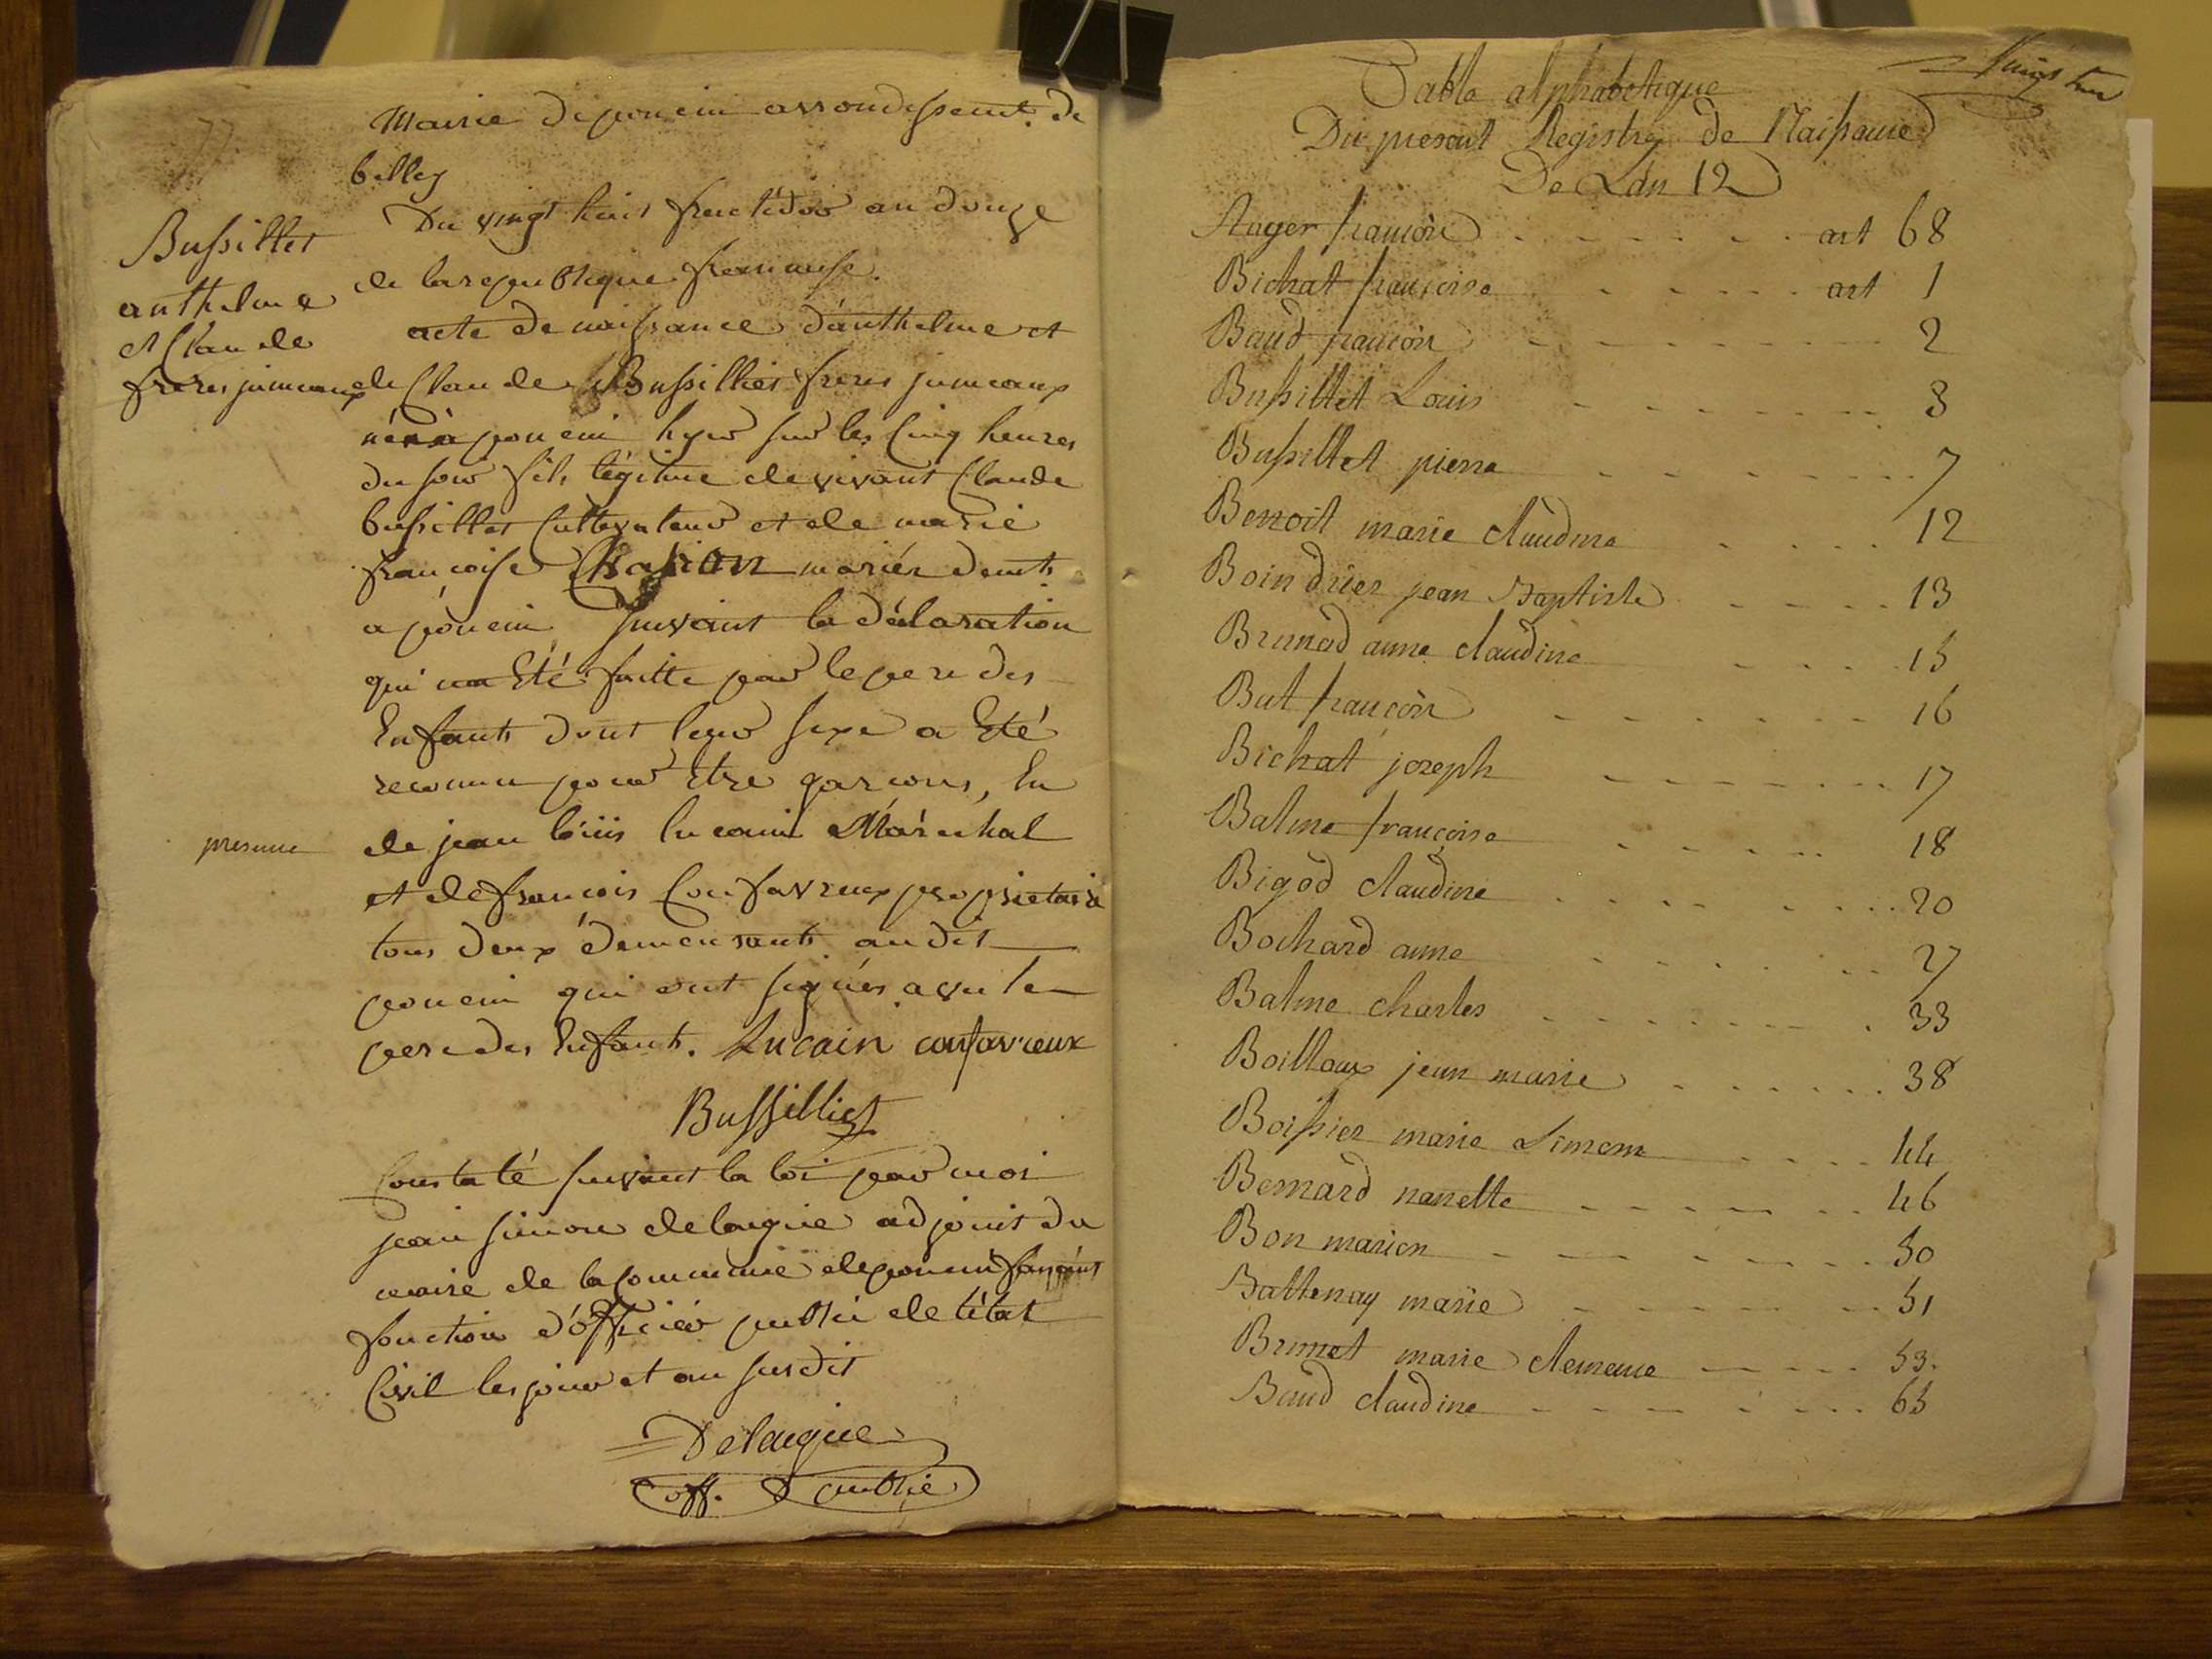 77.
Mairie de poncin arrondissemt. de
belley
Du vingt huit fructidor an douze
de la republique francaise.
Bussillet
anthelme
et Claude
freres jumeaux
acte de naissance d'anthelme et
de Claude Bussilliet freres jumeaux
nés à poncin hyer sur les Cinq heures
du soir fils légitime de vivant Claude
bussillet Cultivateur et de marie
francoise Chapion mariés demts
a poncin, suivant la déclaration
qui a Eté faitte par le pere des
Enfants dont leur sexe a Eté
reconnu pour Etre garcons, En
presence
de jean loüis lucain Maréchal
et de francois Confavreux proprietaire
tous deux demeurants au dit
poncin qui ont signés avec le
pere des Enfants. Lucain confavreux
Bussilliet
Constaté suivant la loi par moi
jean simon delaigue adjoint du
maire de la Commune de poncin faisant
fonction d'officier public de l'état
Civil les jour et an susdit
Delaigue
off. public
Table alphabetique
Du present Registre de Naissance
De L'an 12
Auger francois art 68
Bichat francoise art 1
Baud francois 2
Bussillet Louis 3
Bussillet pierre 7
Benoit marie claudine 12
Boindrier jean Baptiste 13
Brunod anne claudine 15
But francois 16
Bichat joseph 17
Balme francoise 18
Bigod claudine 20
Bochard anne 27
Balme charles 33
Boilloux jean marie 38
Boissier marie Simeon 44
Bernard nanette 46
Bon marion 50
Battenay marie 51
Brunet marie clemence 53.
Baud claudine 65